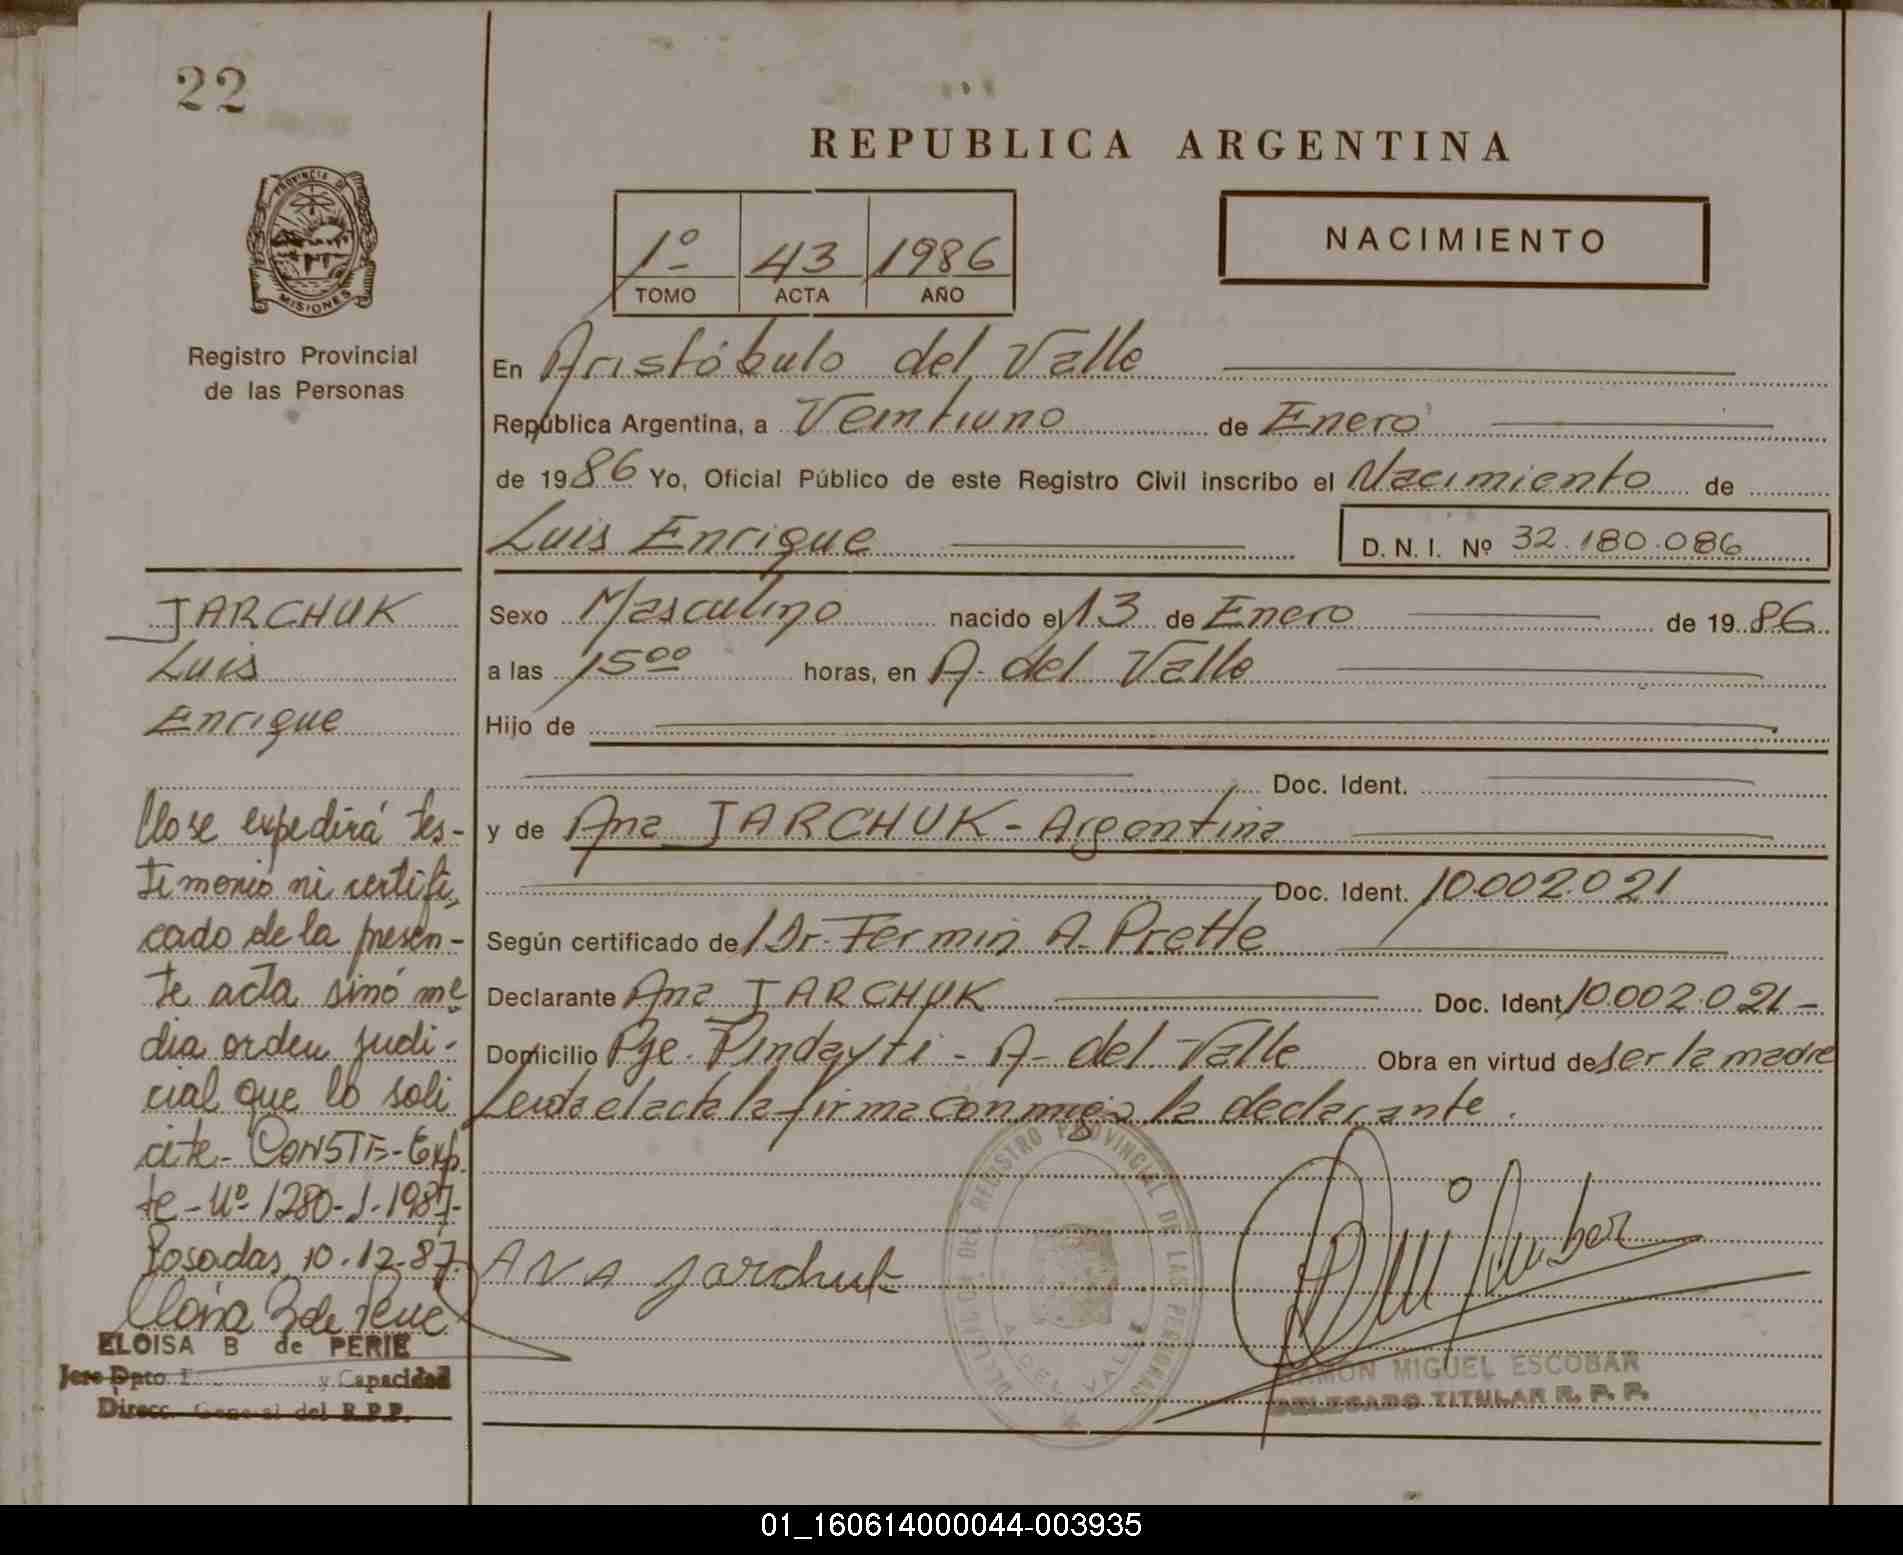 22
REPUBLICA ARGENTINA
PROVINCIA DE
MISIONES
Registro Provincial
de las Personas
1º 43 1986
TOMO ACTA AÑO
NACIMIENTO
En Aristóbulo del Valle
República Argentina, a Veintiuno de Enero
de 1986 Yo, Oficial Público de este Registro Civil inscribo el Nacimiento de
Luis Enrique D. N. I. Nº 32.180.086
Sexo Masculino nacido el 13 de Enero de 1986
a las 15 00 horas, en A. del Valle
Hijo de
Doc. Ident.
y de Ana JARCHUK - Argentina
Doc. Ident. 10.002.021
Según certificado de Dr. Fermin A. Prette
Declarante Ana JARCHUK Doc. Ident. 10.002.021-
Domicilio Pje. Pindayti - A- del Valle Obra en virtud de ser la madre
Leida el acta la firma conmigo la declarante.
ANA Jarchuk
DEL REGISTRO PROVINCIAL DE LAS PERSONAS
A. DEL VALLE
RAMON MIGUEL ESCOBAR
DELEGADO TITULAR R. P. P.
JARCHUK
Luis
Enrique
No se expedirá tes-
timonio ni certifi-
cado de la presen-
te acta sinó me
dia orden judi-
cial que lo soli
cite- CONSTE- Exp
te- Nº 1280-J-1987-
Posadas, 10-12-87
ELOISA B de PERIE
Jefe Dpto y Capacidad
Direcc. General del R.P.P.
01_160614000044-003935